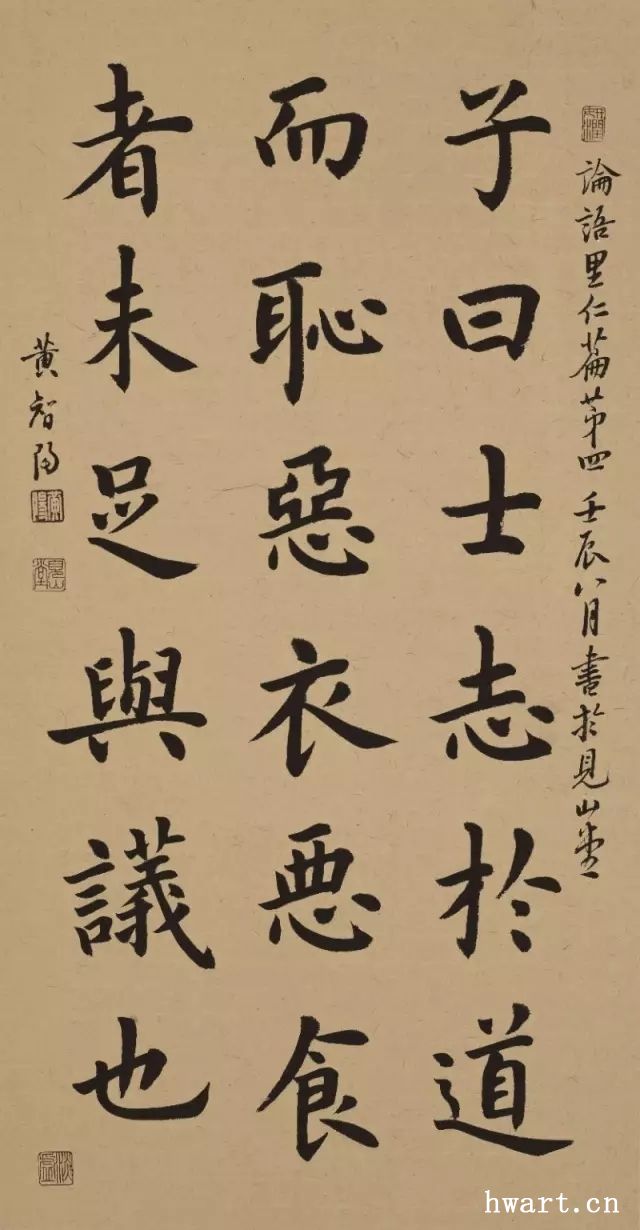 論語里仁篇第四 壬辰八月書於見山堂
子曰士志於道
而恥惡衣惡食
者未足與議也
黄智陽
hwart.cn